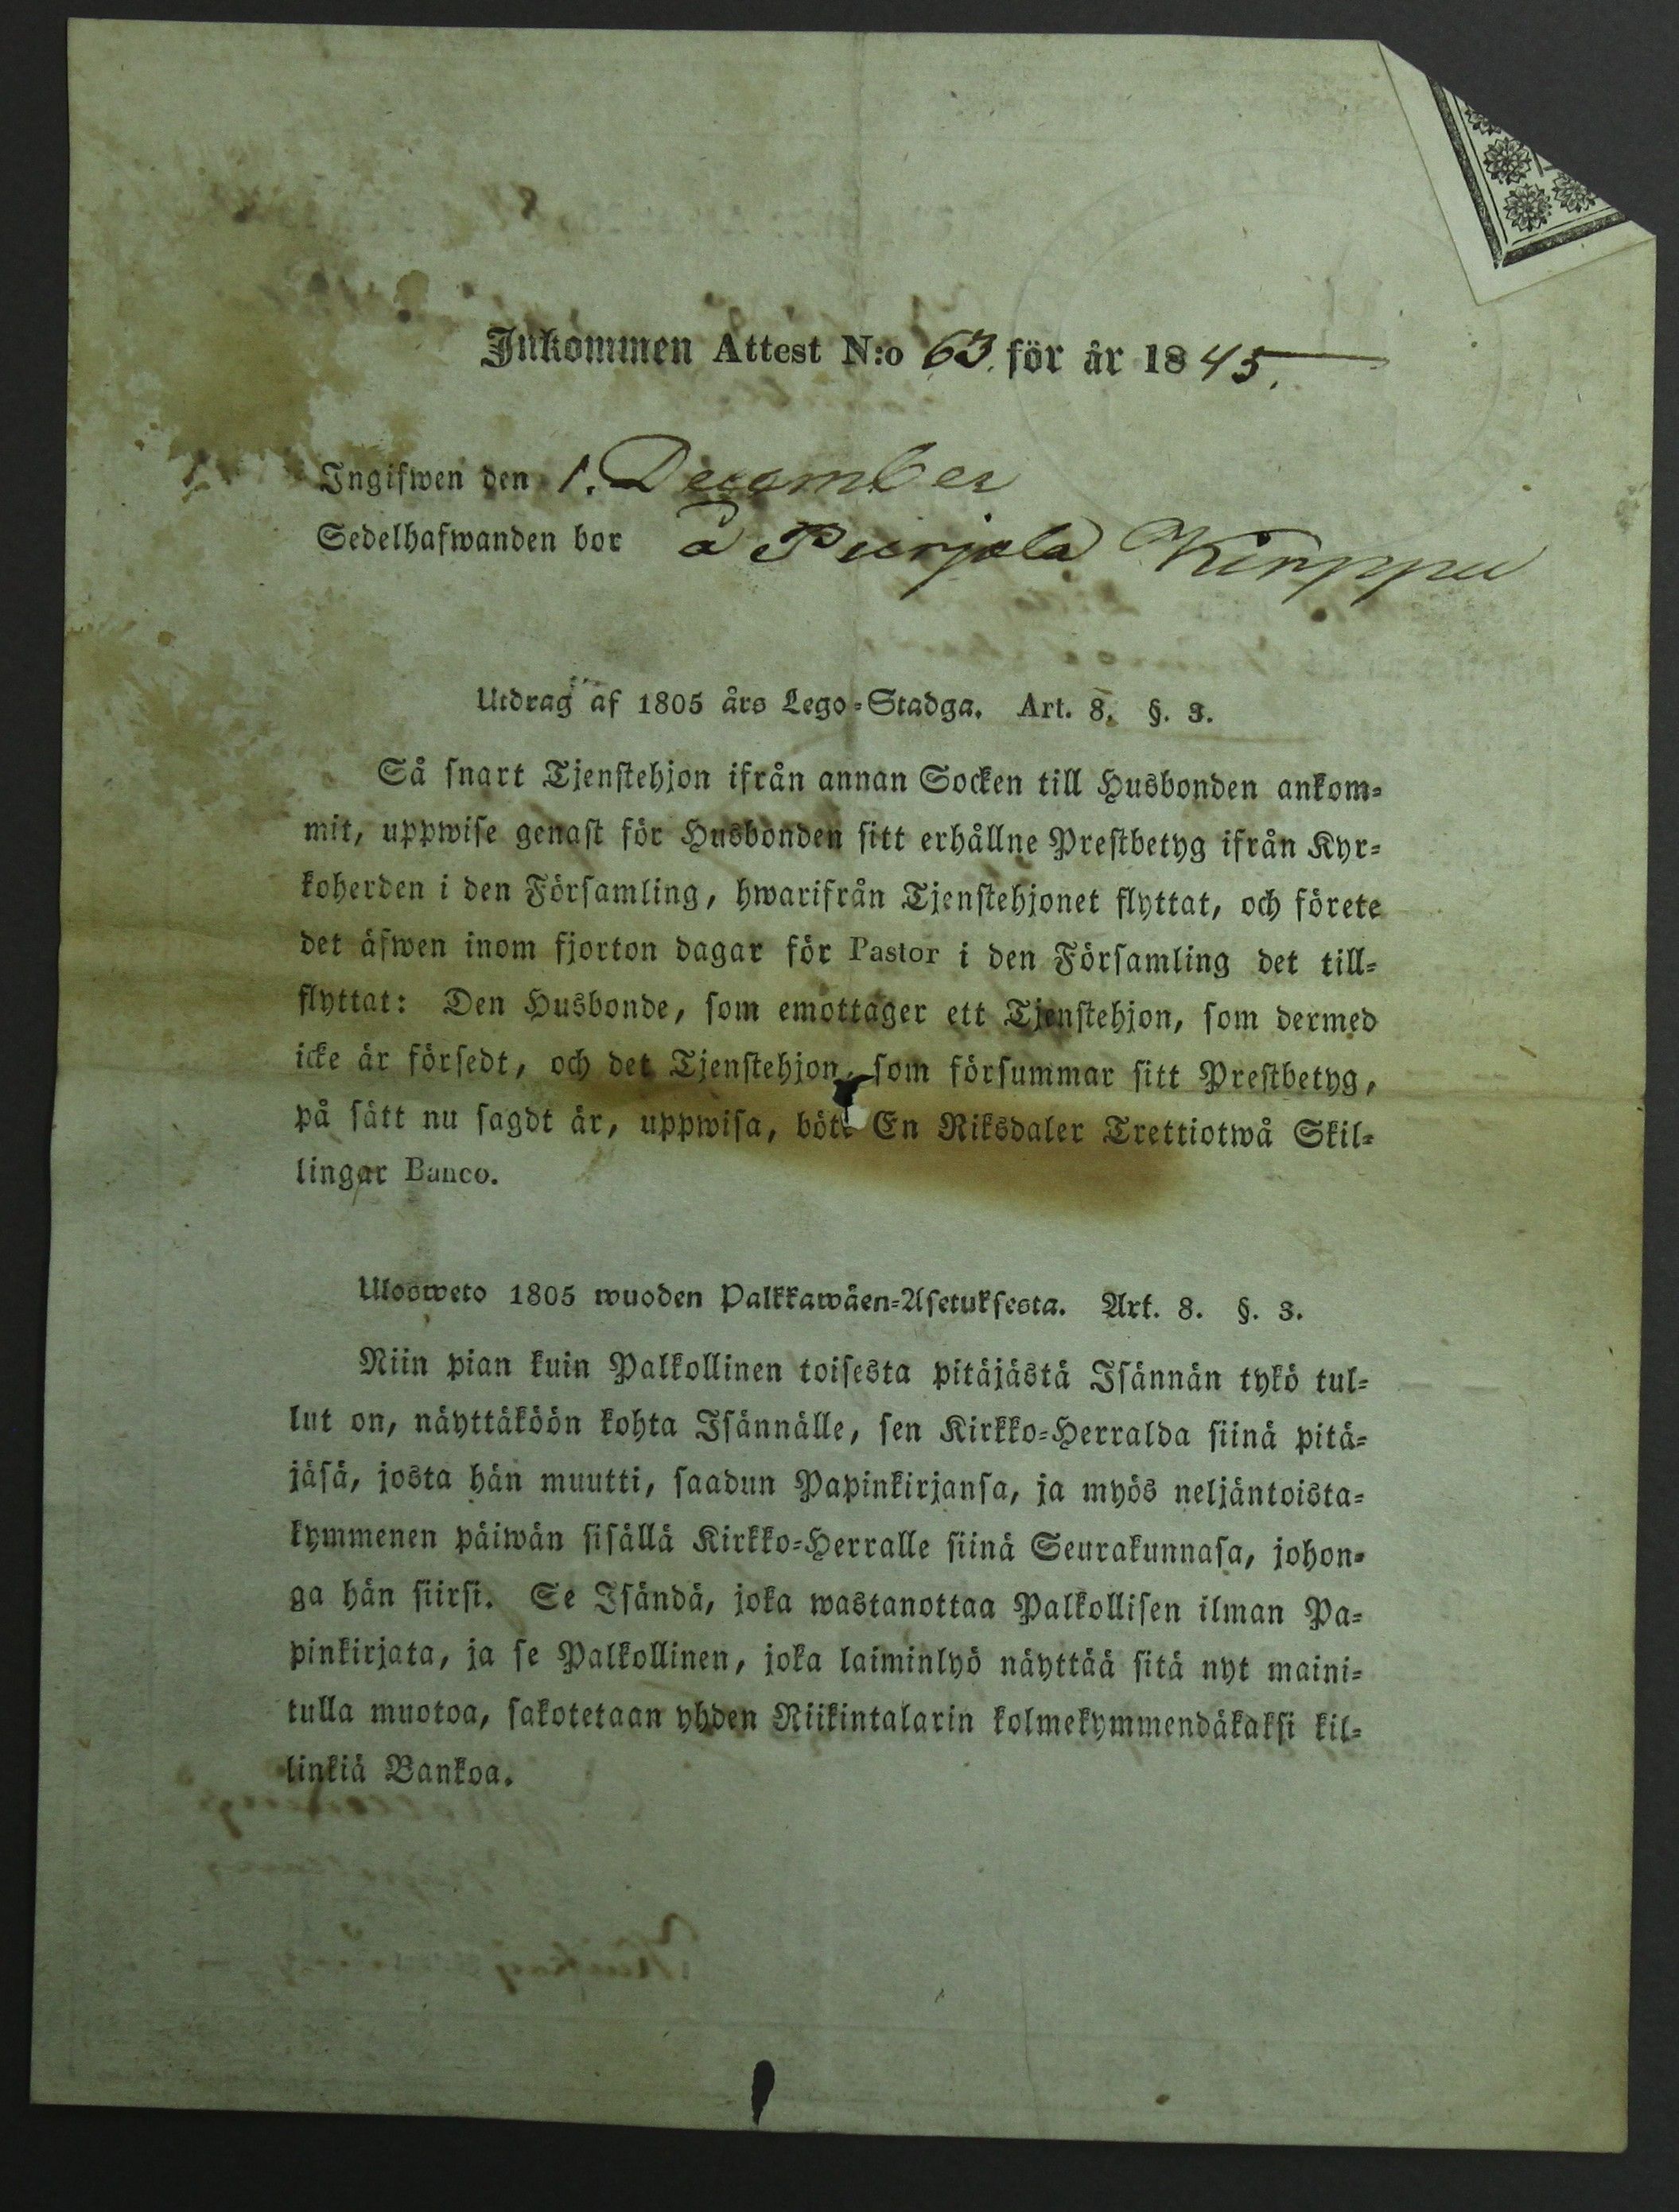 Inkommen Attest N:o 63. för år 1845.
Ingifwen den 1. December
Sedelhafwanden bor å Purjala Kirppu
Utdrag af 1805 års Lego-Stadga. Art. 8. §. 3.
Så snart Tjenstehjon ifrån annan Socken till Husbonden ankom-
mit, uppwise genast för Husbonden sitt erhållne Prestbetyg ifrån Kyr-
koherden i den Församling, hwarifrån Tjenstehjonet flyttat, och förete
det äfwen inom fjorton dagar för Pastor i den Församling det till-
flyttat: Den Husbonde, som emottager ett Tjenstehjon, som dermed
icke är försedt, och det Tjenstehjon, som försummar sitt Prestbetyg,
på sätt nu sagdt är, uppwisa, böte En Riksdaler Trettiotwå Skil-
lingar Banco.
Ulosweto 1805 wuoden Palkkawäen-Asetuksesta. Art. 8. §. 3.
Niin pian kuin Palkollinen toisesta pitäjästä Isännän tykö tul-
lut on, näyttäköön kohta Isännälle, sen Kirkko-Herralda siinä pitä-
jäsä, josta hän muutti, saadun Papinkirjansa, ja myös neljäntoista-
kymmenen päiwän sisällä Kirkko-Herralle siinä Seurakunnasa, johon-
ga hän siirsi. Se Isändä, joka wastanottaa Palkollisen ilman Pa-
pinkirjata, ja se Palkollinen, joka laiminlyö näyttää sitä nyt maini-
tulla muotoa, sakotetaan yhden Riikintalarin kolmekymmendäkaksi kil-
linkiä Bankoa.